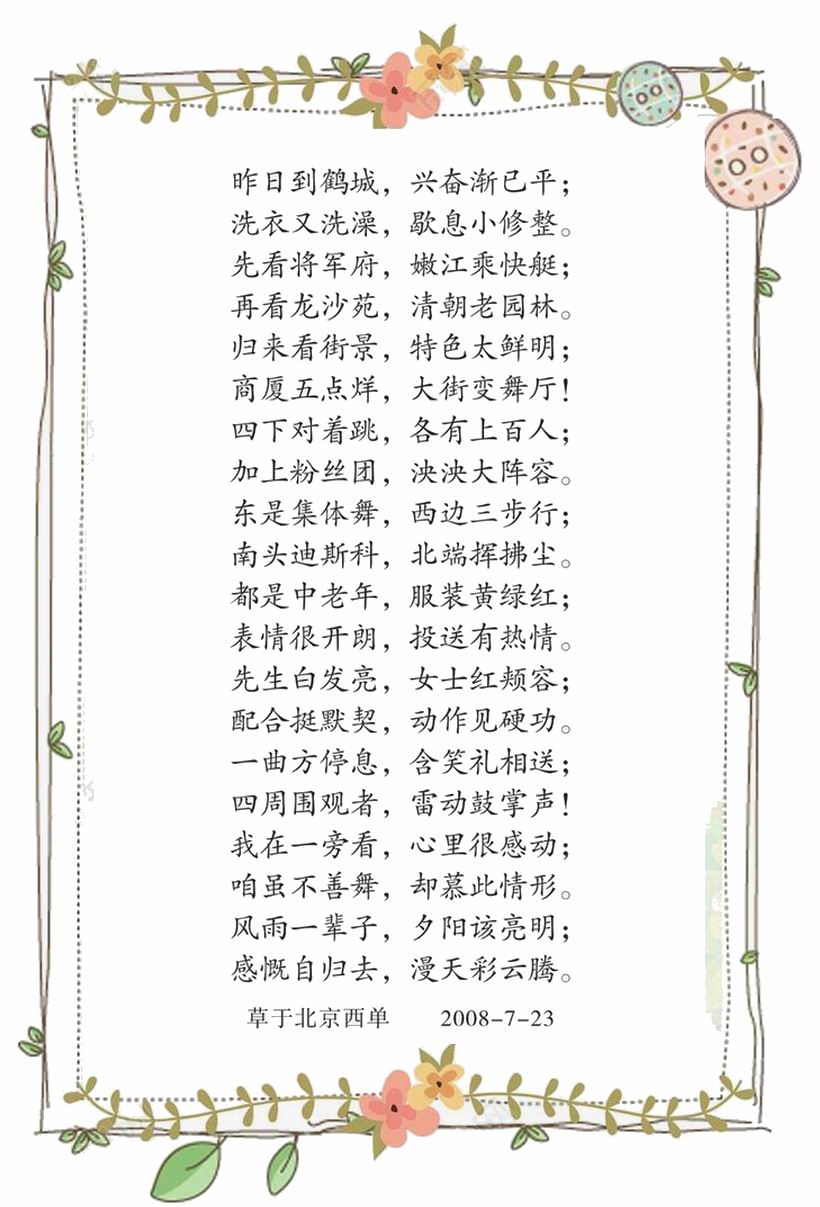 昨日到鹤城，兴奋渐已平；
洗衣又洗澡，歇息小修整。
先看将军府，嫩江乘快艇；
再看龙沙苑，清朝老园林。
归来看街景，特色太鲜明；
商厦五点烊，大街变舞厅！
四下对着跳，各有上百人；
加上粉丝团，泱泱大阵容。
东是集体舞，西边三步行；
南头迪斯科，北端挥拂尘。
都是中老年，服装黄绿红；
表情很开朗，投送有热情。
先生白发亮，女士红颊容；
配合挺默契，动作见硬功。
一曲方停息，含笑礼相送；
四周围观者，雷动鼓掌声！
我在一旁看，心里很感动；
咱虽不善舞，却慕此情形。
风雨一辈子，夕阳该亮明；
感慨自归去，漫天彩云腾。
草于北京西单 2008-7-23